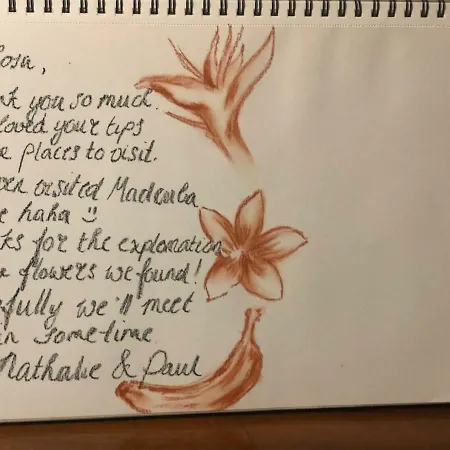 osa,
nk you so much.
loved your tips
e places to visit.
en visited Madeuba
e haha :)
ks for the explanation
e flowers we found!
efully we'll meet
in sometime
Nathalie & Paul